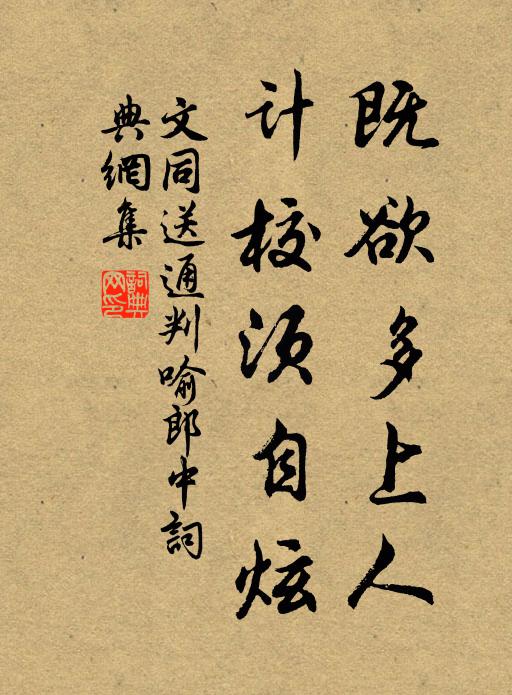 既欲多上人
计校须自炫
文同送通判喻郎中詞
典網集
詞典网印